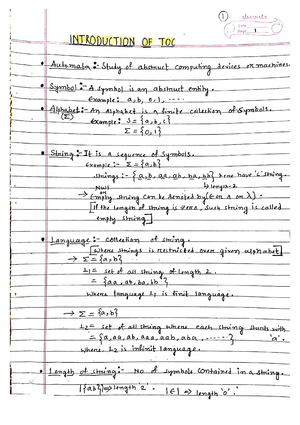 1
Date
Page 1
INTRODUCTION OF TOC
• Automata :- Study of abstract computing devices or machines.
• Symbol :- A symbol is an abstract entity.
Example: a, b, 0, 1, ....
• Alphabet :- An alphabet is a finite collection of symbols.
(Σ) Example: S = {a, b, c}
Σ = {0, 1}
• String :- It is a sequence of symbols.
Example :- Σ = {a, b}
Strings :- {a, b, aa, ab, ba, bb} here have 6 string.
↳ length-2
Null
or
→ Empty string can be denoted by (ε or ∧ or λ) .
If the length of string is zero, such string is called
empty string
• Language :- collection of string.
Where strings is restricted over given alphabet
→ Σ = {a, b}
L1 = set of all string of length 2.
= {aa, ab, ba, bb}
where language L1 is finit language.
→ Σ = {a, b}
L2 = set of all string where each string starts with
= {a, aa, ab, aaa, aab, aba, ......} 'a'.
where L2 is infinit language.
• Length of string :- No of symbols contained in a string.
|{ab}| ⇒ length 2. |ε| ⇒ length '0'.